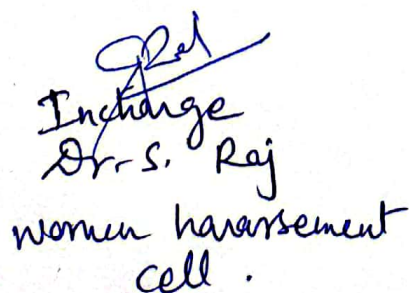 Incharge
Dr. S. Raj
women harassement
cell .